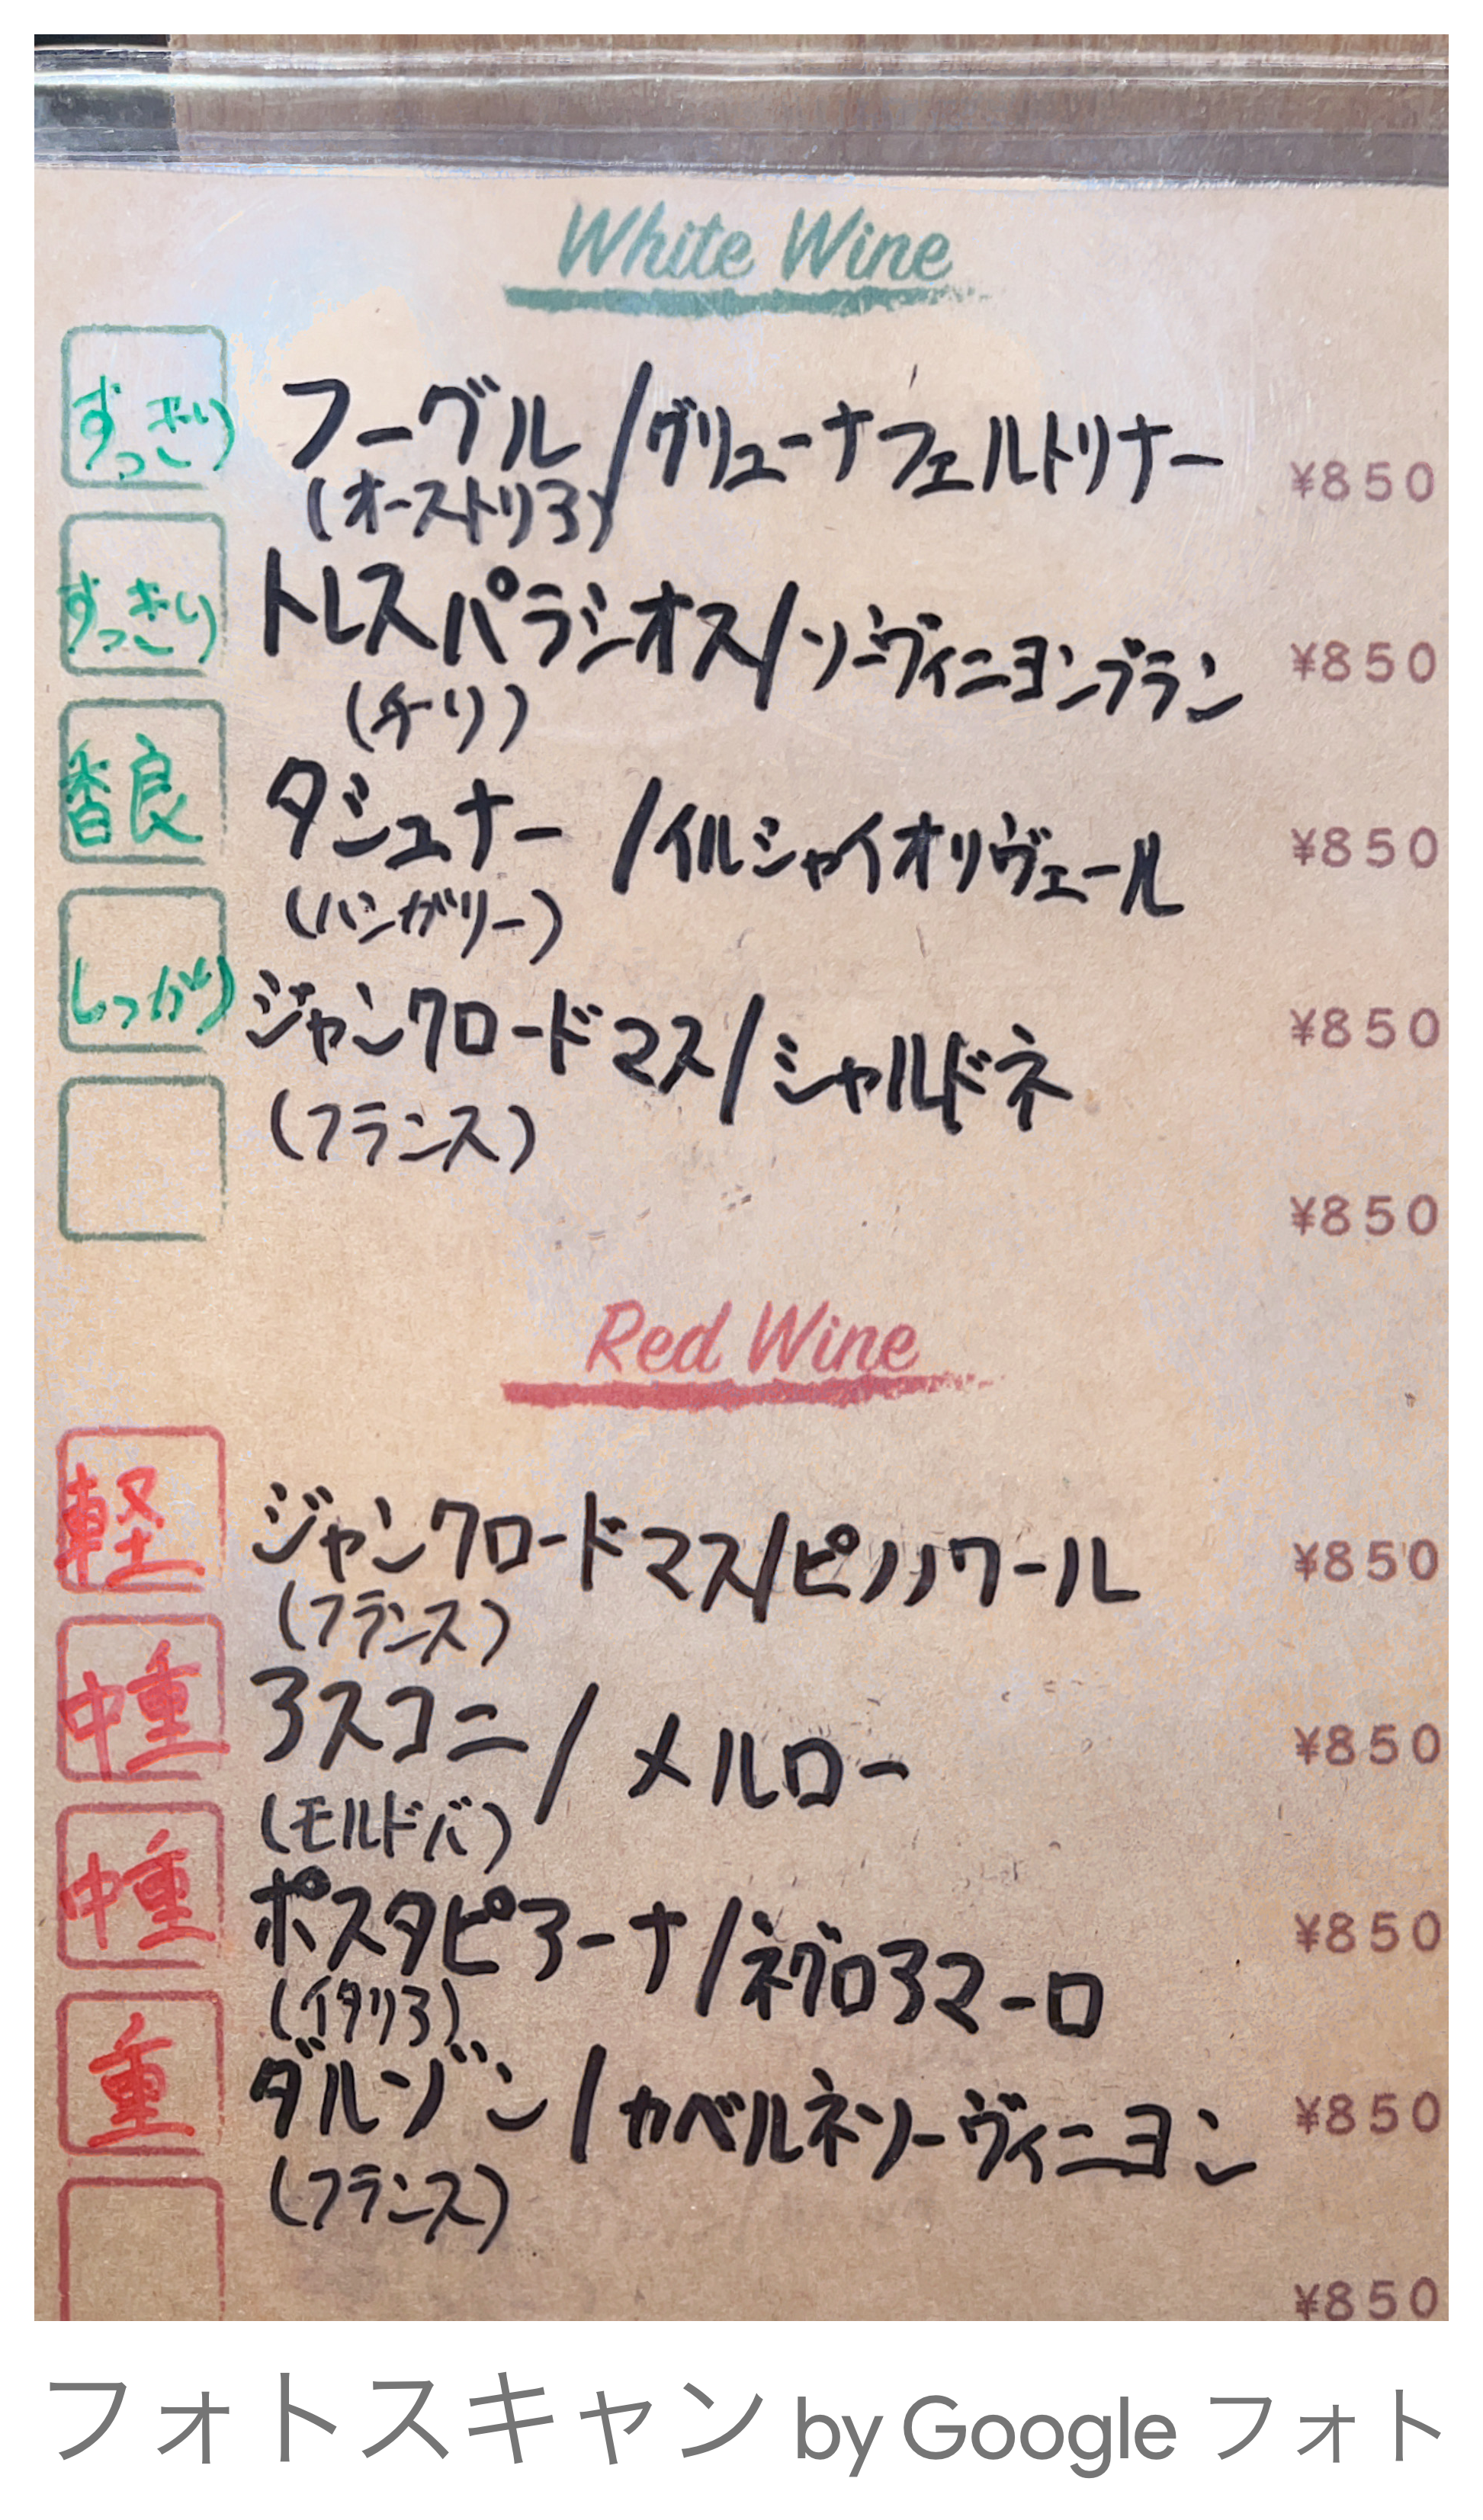 White Wine
すっきり フーグル/グリューナフェルトリナー ¥850
(オーストリア)
すっきり トレスパラシオス/ソーヴィニヨンブラン ¥850
(チリ)
香良 タジュナー/イルシャイオリヴェール ¥850
(ハンガリー)
しっかり ジャンクロードマス/シャルドネ ¥850
(フランス)
¥850
Red Wine
軽 ジャンクロードマス/ピノノワール ¥850
(フランス)
中重 アスコニ/メルロー ¥850
(モルドバ)
中重 ポスタピアーナ/ネグロアマーロ ¥850
(イタリア)
重 ダルゾン/カベルネソーヴィニヨン ¥850
(フランス)
¥850
フォトスキャン by Google フォト